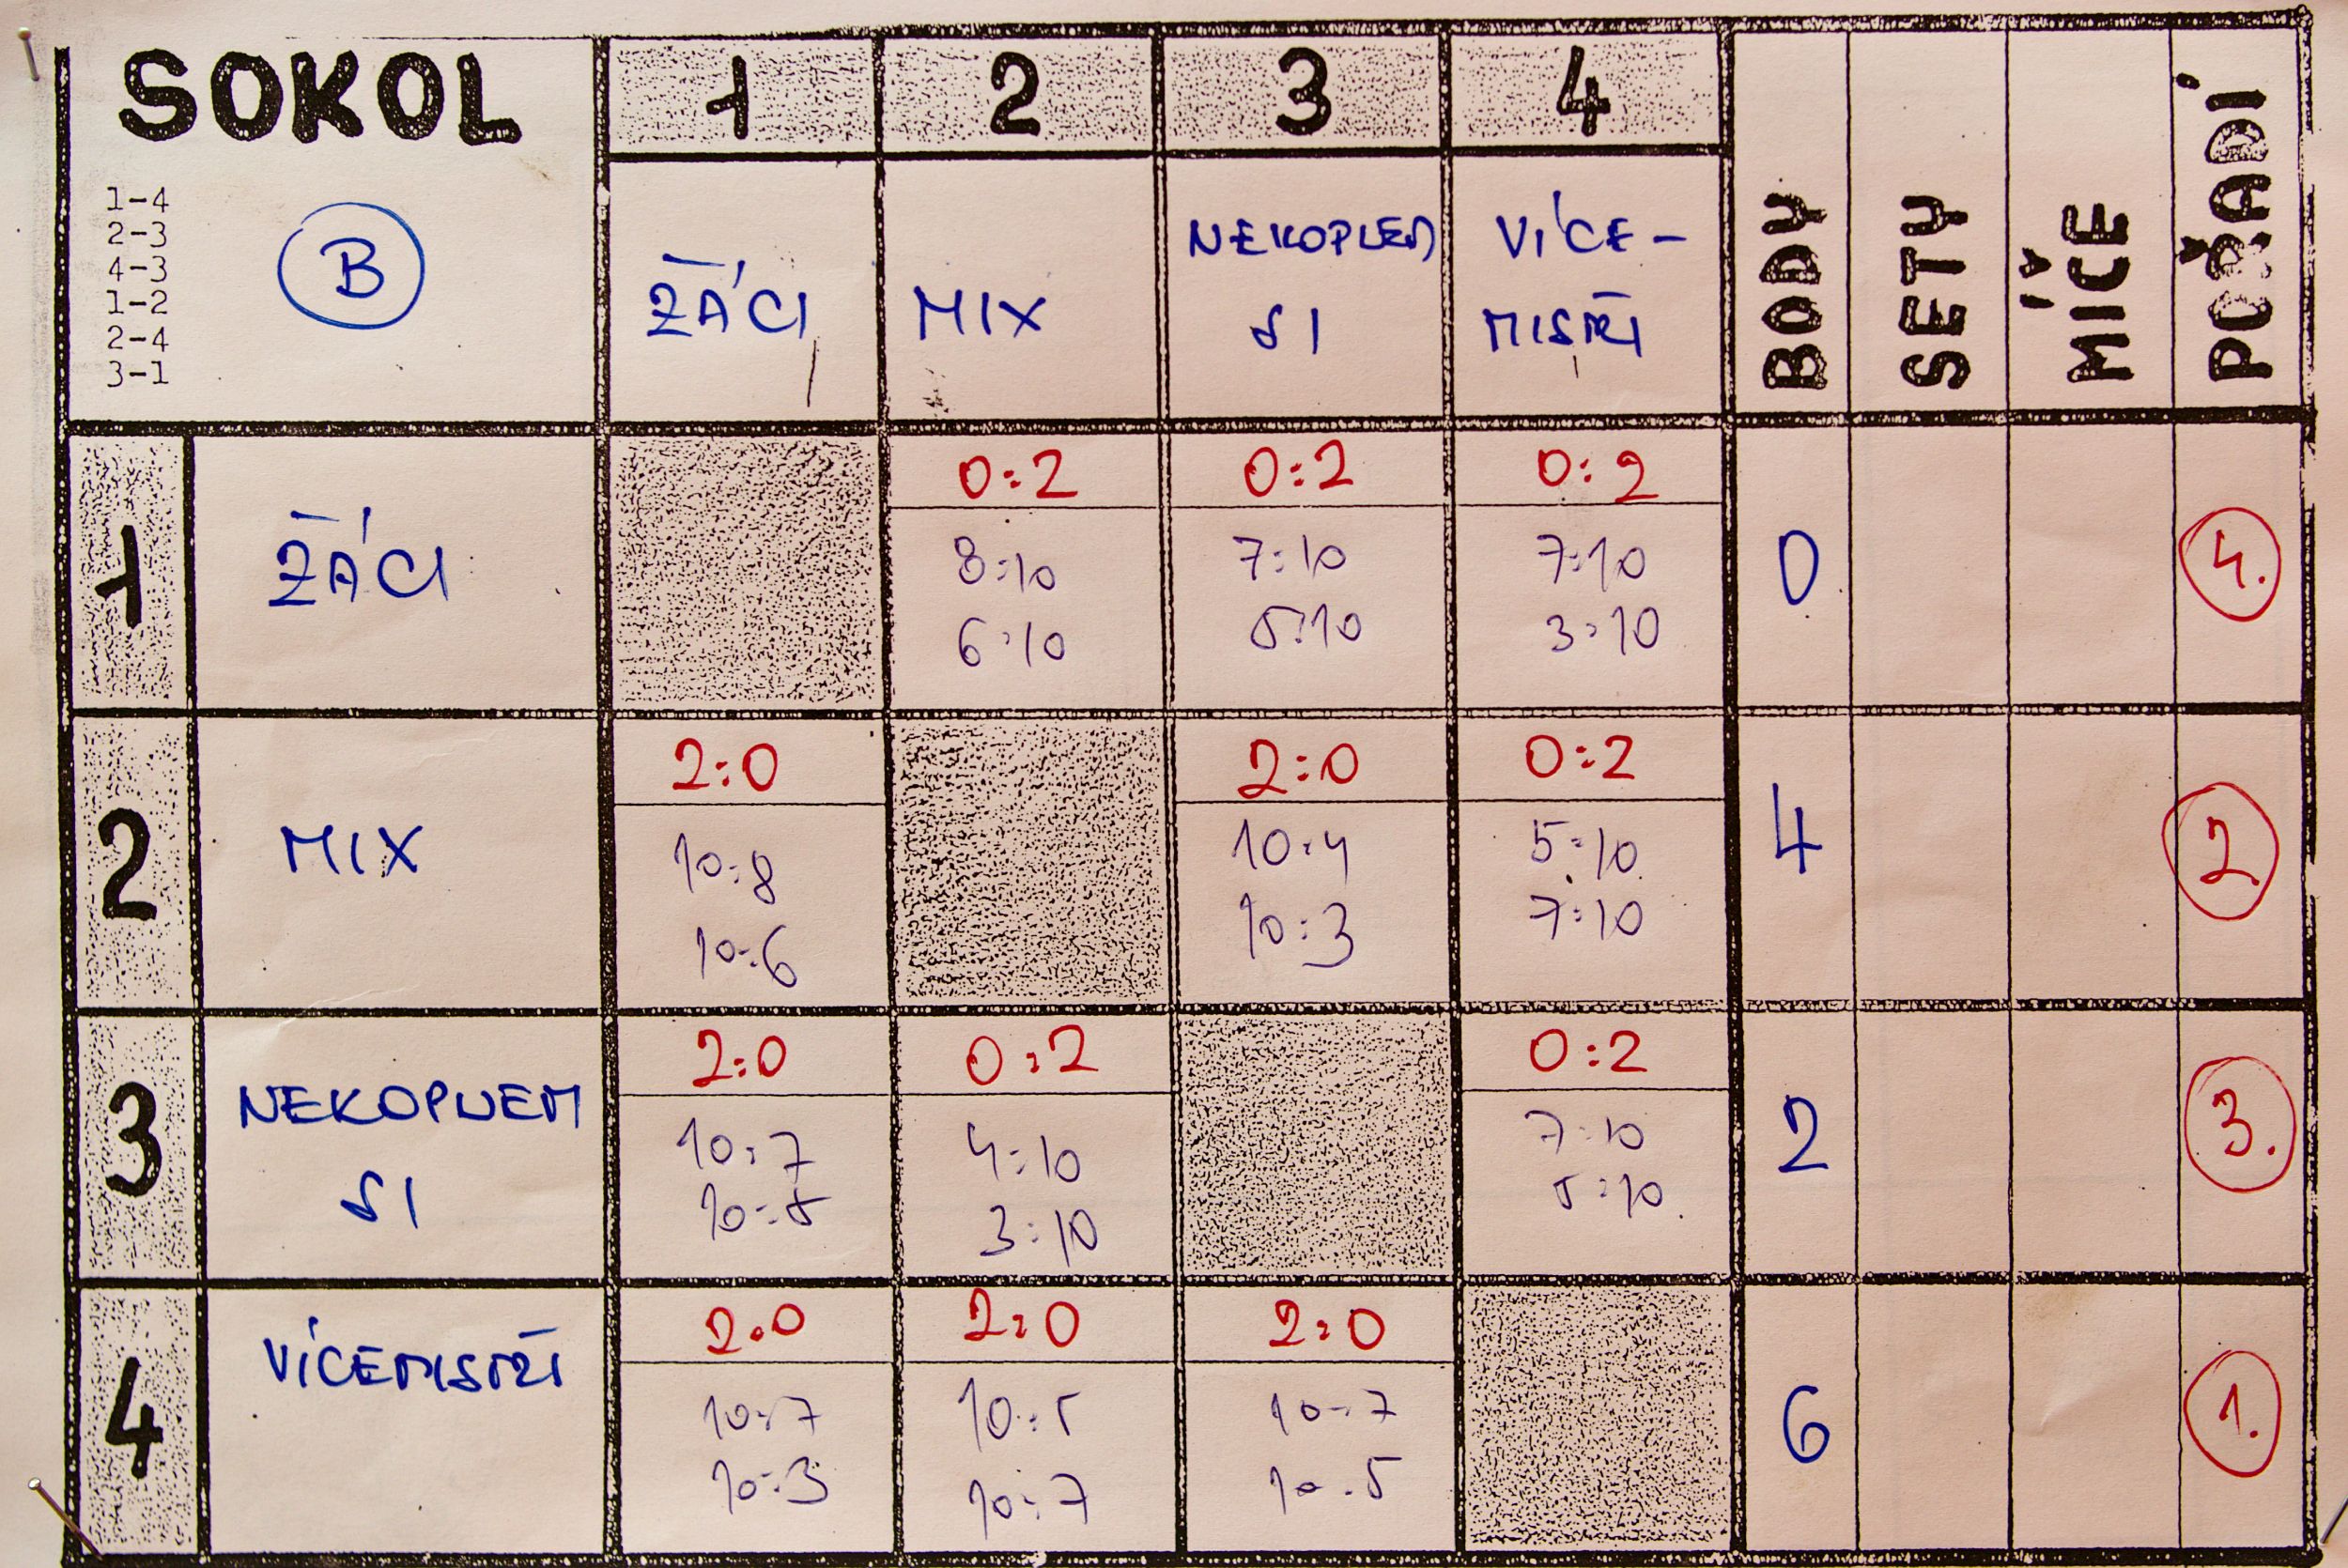 SOKOL
1-4
2-3
4-3
1-2
2-4
3-1
B
1 2 3 4
ŽÁCI
MIX
NEKOPLEM
SI
VÍCE-
MISTŘI
BODY
SETY
MÍČE
POŘADÍ
1 ŽÁCI
0:2 0:2 0:2
8:10 7:10 7:10
6:10 5:10 3:10
0 4.
2 MIX
2:0 2:0 0:2
10:8 10:4 5:10
10:6 10:3 7:10
4 2.
3 NEKOPLEM
SI
2:0 0:2 0:2
10:7 4:10 7:10
10:5 3:10 5:10
2 3.
4 VÍCEMISTŘI
2:0 2:0 2:0
10:7 10:5 10:7
10:3 10:7 10:5
6 1.